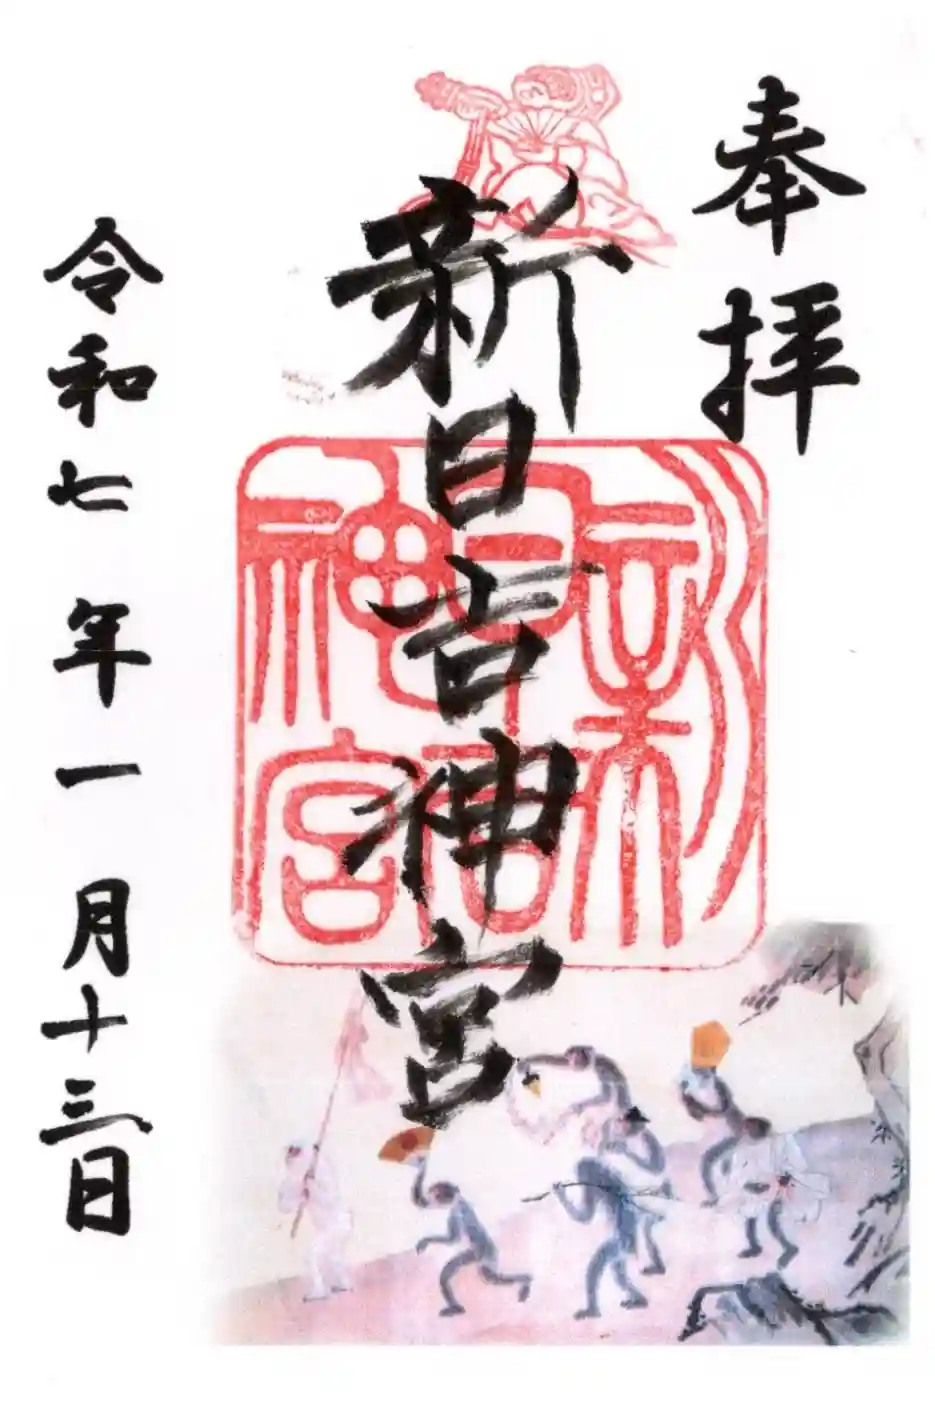 奉拝
新日吉神宮
新日吉神宮
令和七年一月十三日